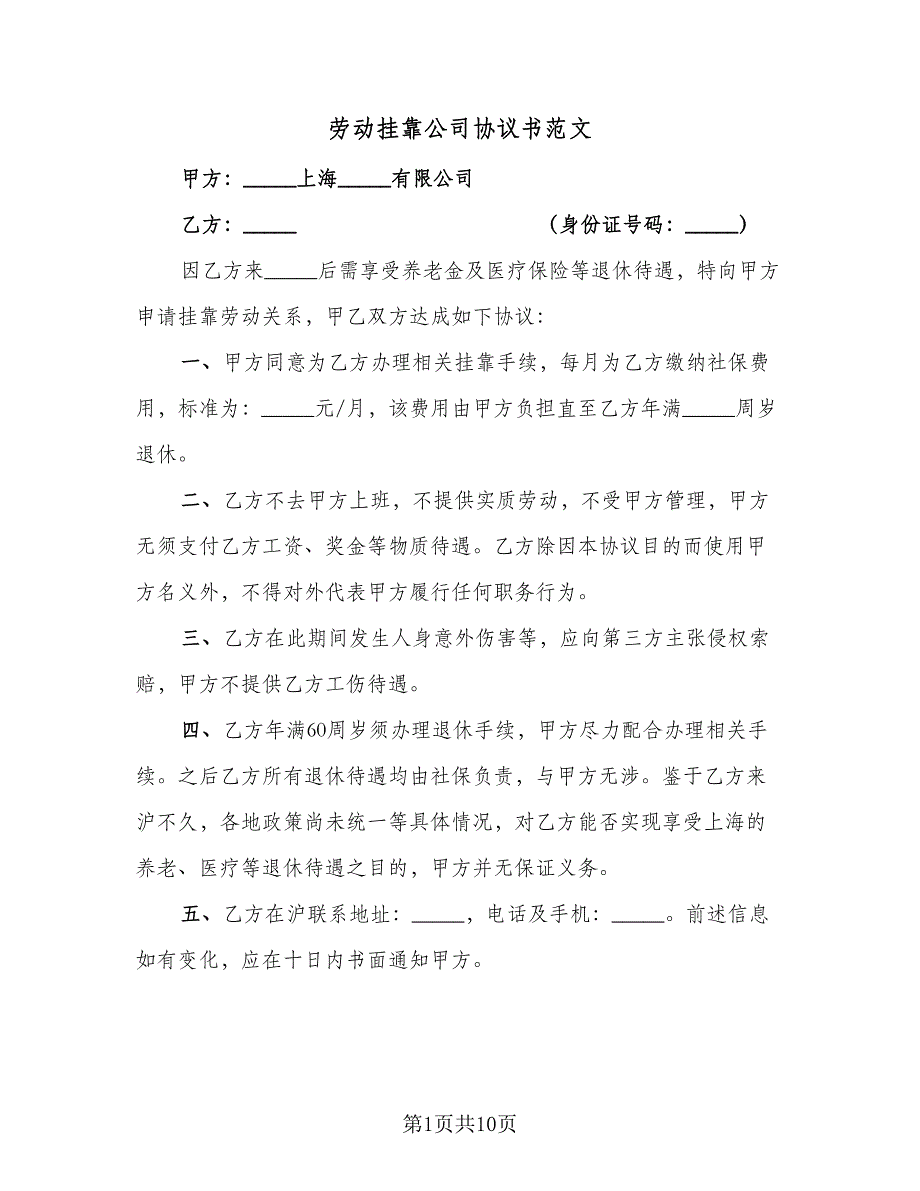 劳动挂靠公司协议书范文
甲方：_____上海_____有限公司
乙方：_____ （身份证号码：_____）
因乙方来_____后需享受养老金及医疗保险等退休待遇，特向甲方
申请挂靠劳动关系，甲乙双方达成如下协议：
一、甲方同意为乙方办理相关挂靠手续，每月为乙方缴纳社保费
用，标准为：_____元/月，该费用由甲方负担直至乙方年满_____周岁
退休。
二、乙方不去甲方上班，不提供实质劳动，不受甲方管理，甲方
无须支付乙方工资、奖金等物质待遇。乙方除因本协议目的而使用甲
方名义外，不得对外代表甲方履行任何职务行为。
三、乙方在此期间发生人身意外伤害等，应向第三方主张侵权索
赔，甲方不提供乙方工伤待遇。
四、乙方年满60周岁须办理退休手续，甲方尽力配合办理相关手
续。之后乙方所有退休待遇均由社保负责，与甲方无涉。鉴于乙方来
沪不久，各地政策尚未统一等具体情况，对乙方能否实现享受上海的
养老、医疗等退休待遇之目的，甲方并无保证义务。
五、乙方在沪联系地址：_____，电话及手机：_____。前述信息
如有变化，应在十日内书面通知甲方。
第1页共10页